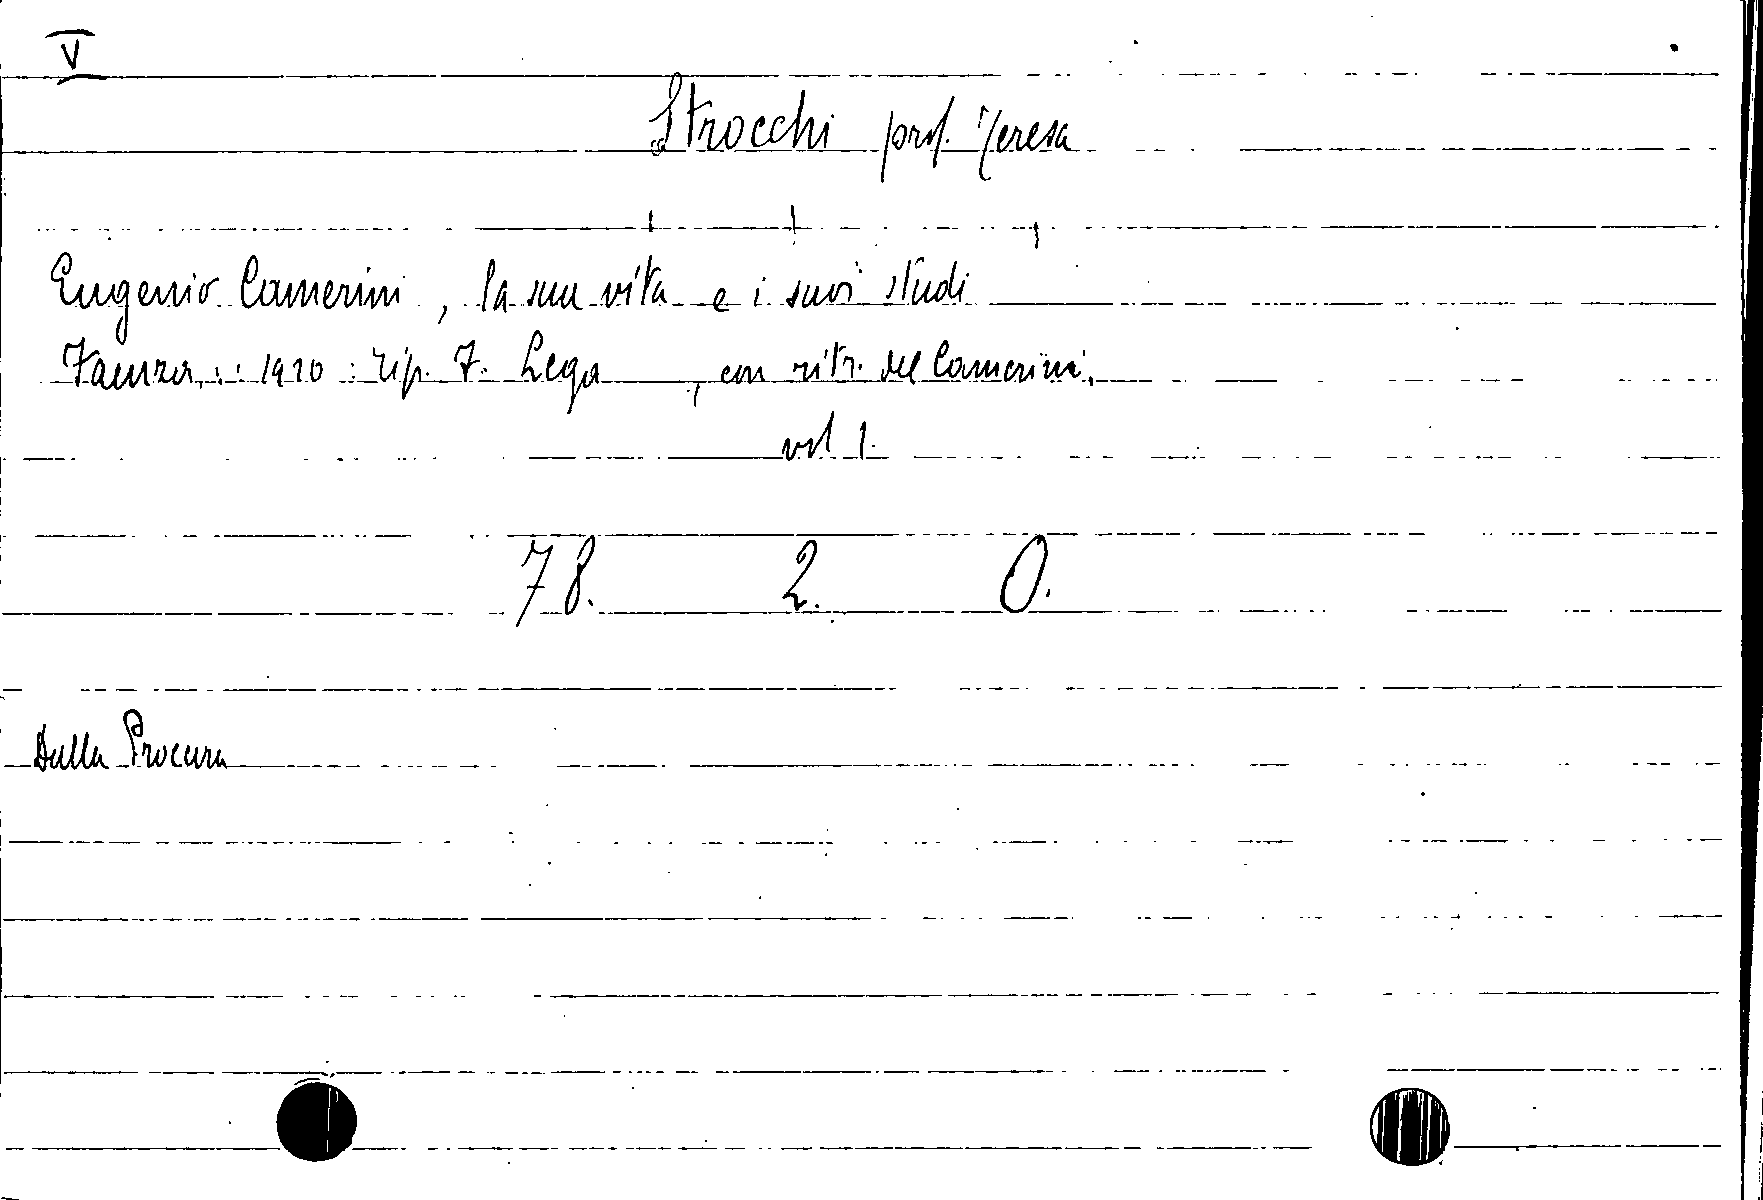 V
Strocchi prof. Teresa
Eugenio Camerini, la sua vita e i suoi studi
Faenza : : 1920 : tip. F. Lega , con ritr. del Camerini.
vol 1.
78. 2. O.
Dalla Procura